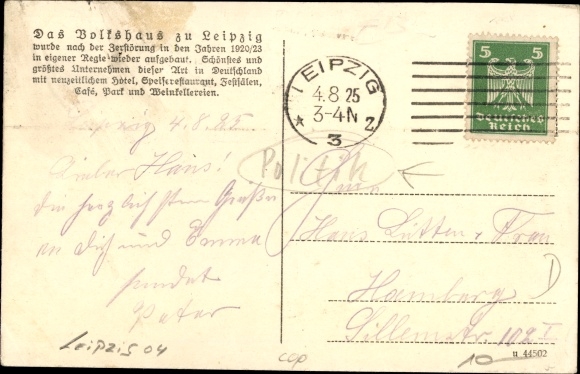 Das Volkshaus zu Leipzig
wurde nach der Zerstörung in den Jahren 1920/23
in eigener Regie wieder aufgebaut. Schönstes und
größtes Unternehmen dieser Art in Deutschland
mit neuzeitlichem Hotel, Speiserestaurant, Festsälen,
Café, Park und Weinkellereien.
LEIPZIG
4.8.25
3-4N
* 2
3
5 5
Deutsches
Reich
Leipzig 4.8.25
Lieber Hans!
Die herzlichsten Grüße
an Dich und Emma
sendet
Peter
Politik
Hans Lütten u. Frau
Hamburg
Sillemstr. 102 I
Leipzig 04
cop
10
u 44502